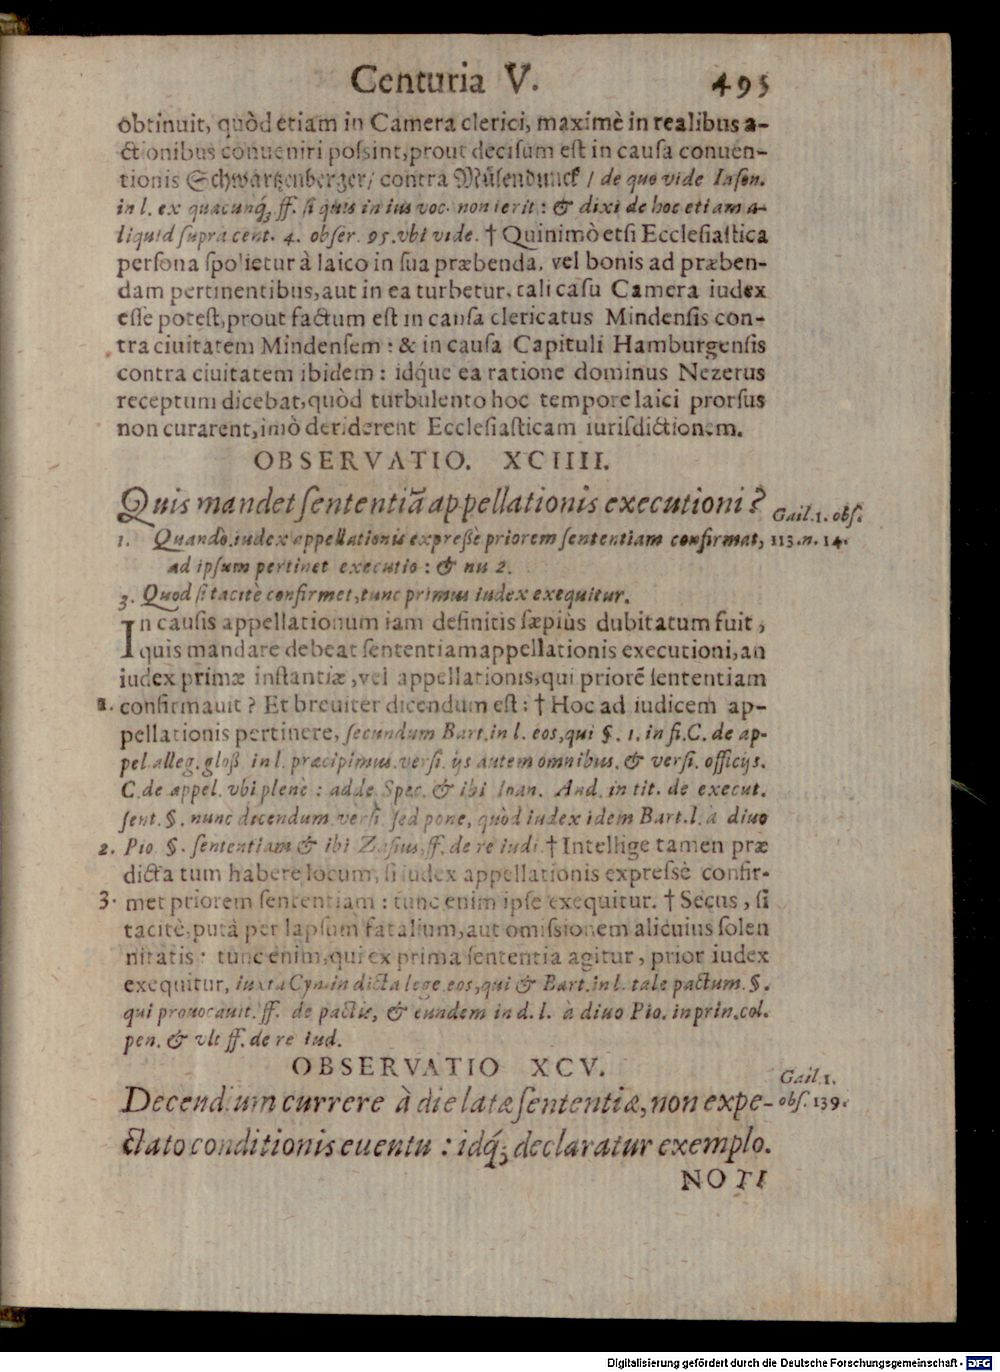 Centuria V. 495
obtinuit, quòd etiam in Camera clerici, maximè in realibus a-
ctionibus conueniri possint, prout decisum est in causa conuen-
tionis Schwartzenberger/ contra Müsendunck / de quo vide Iason.
in l. ex quacunq́; ff. si quis in ius voc. non ierit: & dixi de hoc etiam a-
liquid supra cent. 4. obser. 95. vbi vide. † Quinimò etsi Ecclesiastica
persona spolietur à laico in sua præbenda, vel bonis ad præben-
dam pertinentibus, aut in ea turbetur, tali casu Camera iudex
esse potest, prout factum est in causa clericatus Mindensis con-
tra ciuitatem Mindensem: & in causa Capituli Hamburgensis
contra ciuitatem ibidem: idq́ue ea ratione dominus Nezerus
receptum dicebat, quòd turbulento hoc tempore laici prorsus
non curarent, imò deriderent Ecclesiasticam iurisdictionem.
OBSERVATIO. XCIIII.
Quis mandet sententiã appellationis executioni?
Gail. 1. obs.
113. n. 14.
1. Quando iudex appellationis expressè priorem sententiam confirmat,
ad ipsum pertinet executio: & nu 2.
3. Quod si tacitè confirmet, tunc primus iudex exequitur.
In causis appellationum iam definitis sæpiùs dubitatum fuit,
quis mandare debeat sententiam appellationis executioni, an
iudex primæ instantiæ, vel appellationis, qui priorẽ sententiam
1. confirmauit? Et breuiter dicendum est: † Hoc ad iudicem ap-
pellationis pertinere, secundum Bart. in l. eos, qui §. 1. in fi. C. de ap-
pel. alleg. gloß in l. præcipimus. versi. ijs autem omnibus, & versi. officijs.
C. de appel. vbi plenè: adde Spec. & ibi Ioan. And. in tit. de execut.
sent. §. nunc dicendum versi sed pone, quòd iudex idem Bart. l. à diuo
2. Pio. §. sententiam & ibi Zasius, ff. de re iudi. † Intellige tamen præ
dicta tum habere locum, si iudex appellationis expressè confir-
3. met priorem sententiam: tunc enim ipse exequitur. † Secus, si
tacitè, putà per lapsum fatalium, aut omissionem alicuius solen
nitatis: tunc enim, qui ex prima sententia agitur, prior iudex
exequitur, iuxta Cyn. in dicta lege eos, qui & Bart. in l. tale pactum. §.
qui prouocauit. ff. de pactis, & eundem in d. l. à diuo Pio. in prin. col.
pen. & vlt ff. de re iud.
OBSERVATIO XCV.
Gail 1.
obs. 139.
Decendium currere à die latæ sententiæ, non expe-
ctato conditionis euentu: idq́; declaratur exemplo.
NOTI
Digitalisierung gefördert durch die Deutsche Forschungsgemeinschaft - DFG